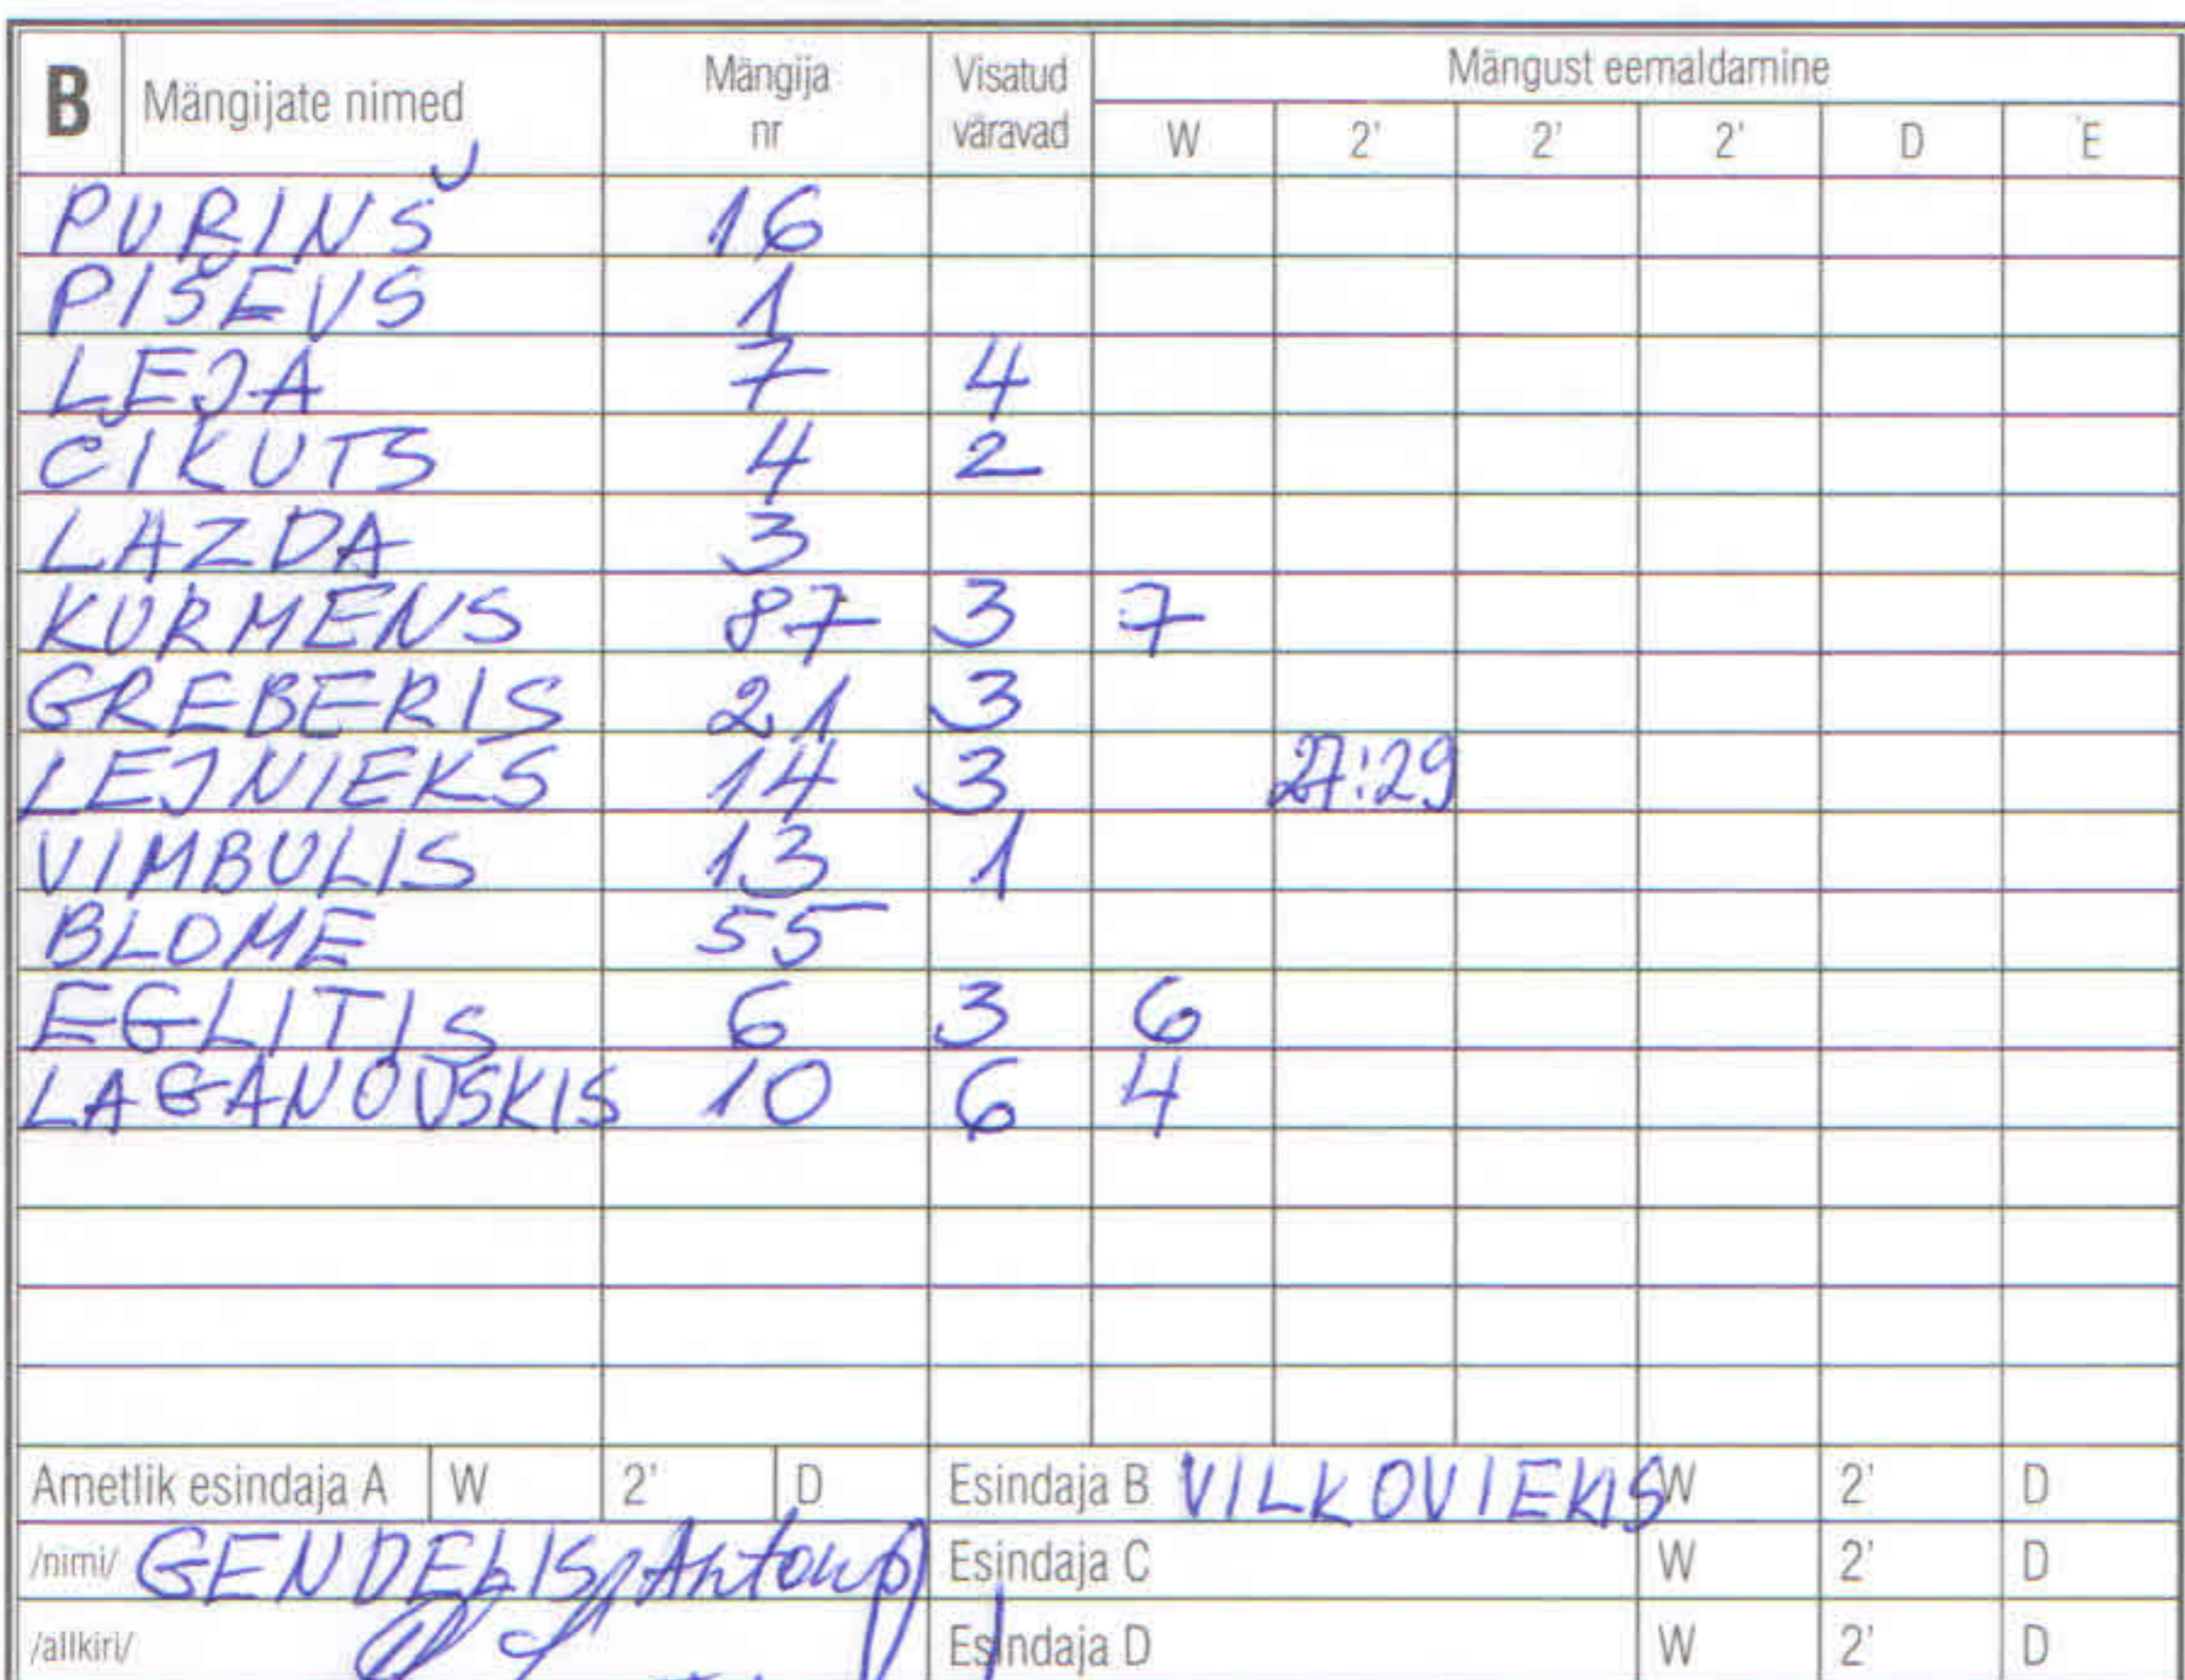 B Mängijate nimed Mängija nr Visatud väravad Mängust eemaldamine
W 2' 2' 2' D E
PURINŠ 16
PIŠEVS 1
LEJA 7 4
ČIKUTS 4 2
LAZDA 3
KURMENS 87 3 7
GREBERIS 21 3
LEJNIEKS 14 3 27:29
VIMBULIS 13 1
BLOME 55
EGLITIS 6 3 6
LAGANOVSKIS 10 6 4
Ametlik esindaja A W 2' D Esindaja B VILKOVIEKIS W 2' D
/nimi/ GENDELIS, Esindaja C W 2' D
/allkiri/ Esindaja D W 2' D